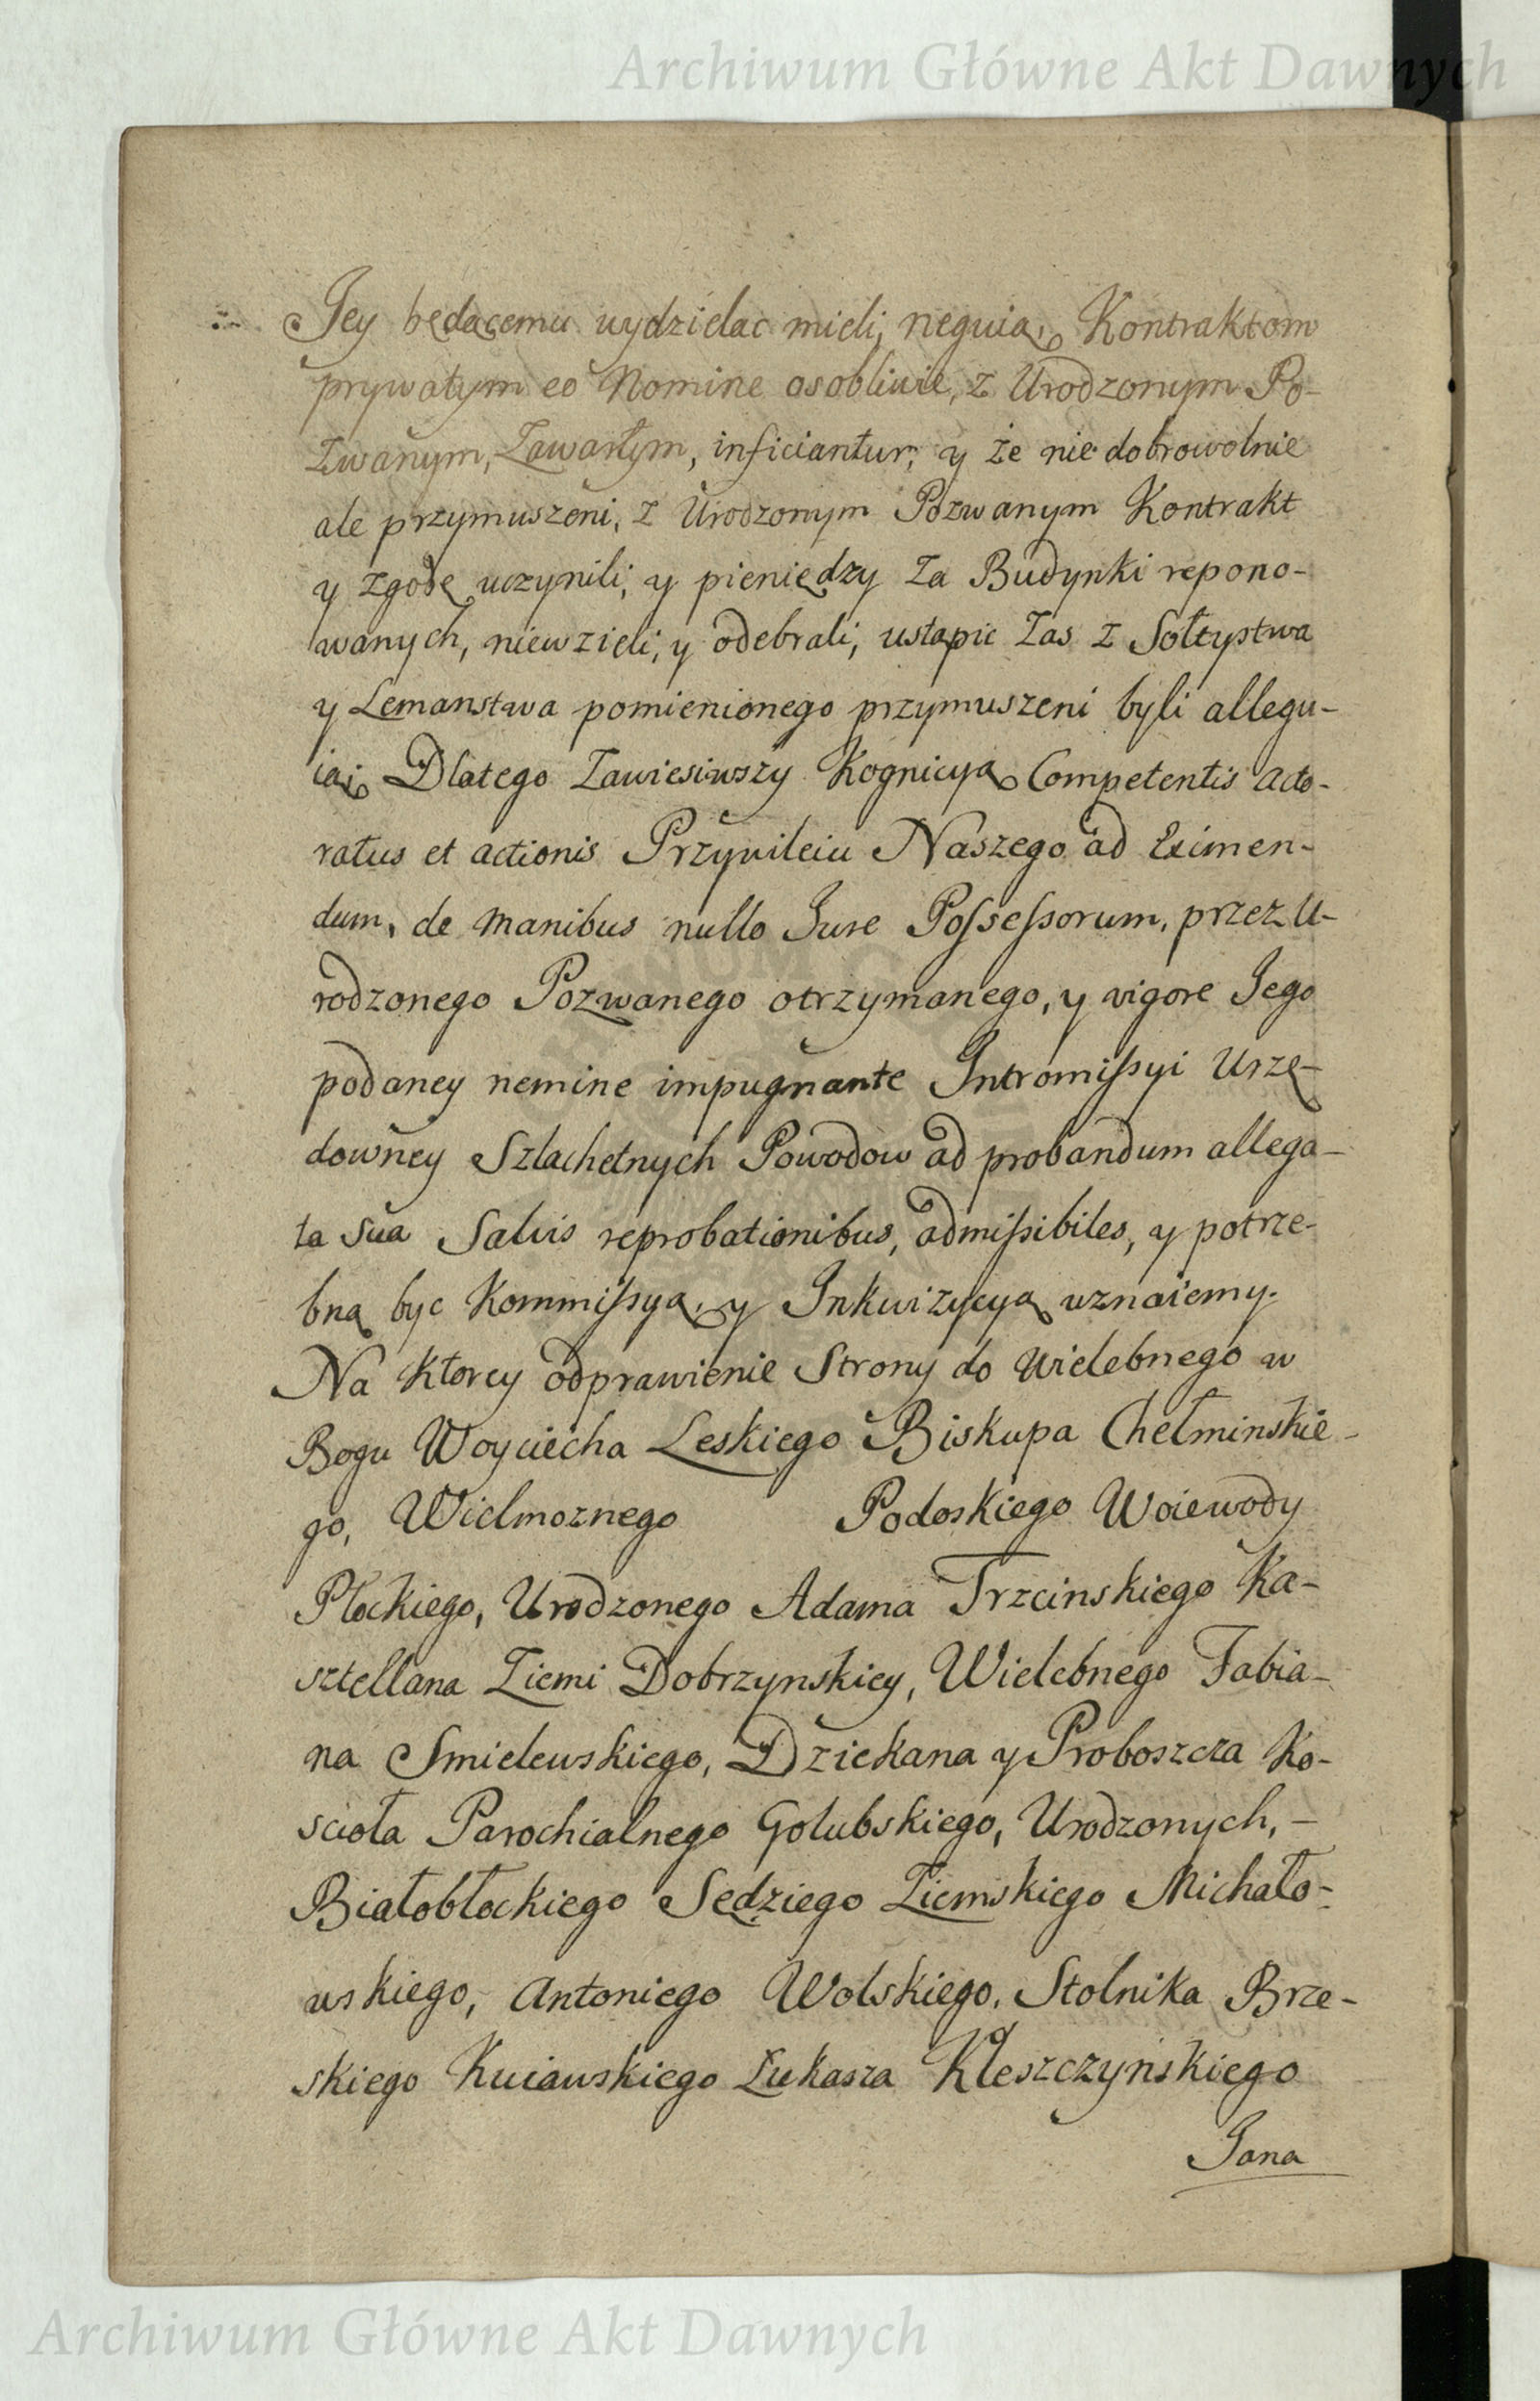 Archiwum Główne Akt Dawnych
Jey będącemu wydzielac mieli, neguią, Kontraktom
prywatym eo Nomine osobliwie, z Urodzonym Po-
zwanym, Zawartym, inficiantur, y że nie dobrowolnie
ale przymuszeni, z Urodzonym Pozwanym Kontrakt
y zgodę uczynili, y pieniędzy za Budynki repono-
wanych, niewzieli, y odebrali, ustąpic zas z Sołtystwa
y Lemanstwa pomienionego przymuszeni byli allegu-
ią, Dlatego Zawiesiwszy Kognicyą Competentis acto-
ratus et actionis Przywileiu Naszego ad Eximen-
dum, de manibus nullo Jure Possessorum, przez U-
rodzonego Pozwanego otrzymanego, y vigore Jego
podaney nemine impugnante Intromissyi Urzę-
downey Szlachetnych Powodow ad probandum allega-
ta sua Salvis reprobationibus, admissibiles, y potrze-
bną byc Kommissyą, y Inkwizycyą uznaiemy.
Na ktorey odprawienie Strony do Wielebnego w
Bogu Woyciecha Leskiego Biskupa Chełminskie-
go, Wielmoznego Podoskiego Woiewody
Płockiego, Urodzonego Adama Trzcinskiego Ka-
sztellana Ziemi Dobrzynskiey, Wielebnego Fabia-
na Smielewskiego, Dziekana y Proboszcza Ko-
scioła Parochialnego Golubskiego, Urodzonych, -
Białobłockiego Sędziego Ziemskiego Michało-
wskiego, Antoniego Wolskiego, Stolnika Brze-
skiego Kuiawskiego Łukasza Kleszczyńskiego
Jana
Archiwum Główne Akt Dawnych